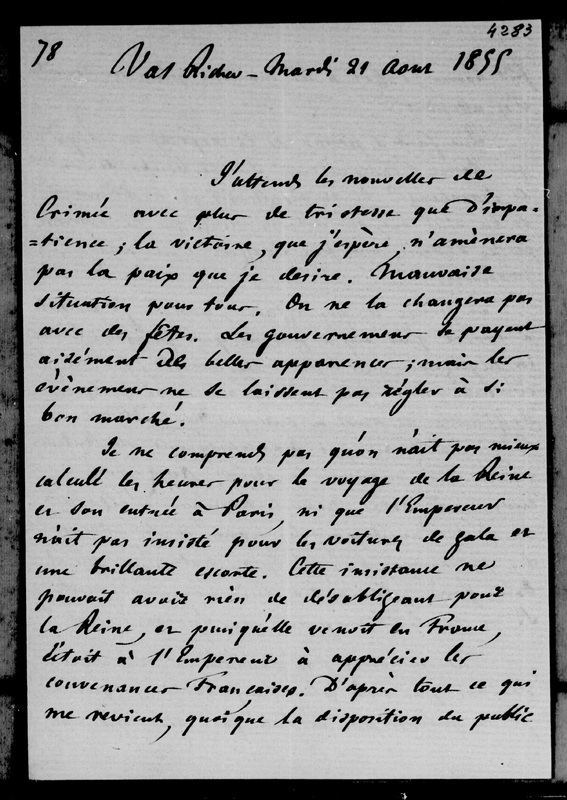 4283
78
Val Richer - Mardi 21 Aout 1855
J'attends les nouvelles de
Crimée avec plus de tristesse que d'impa=
=tience ; la victoire, que j'espère, n'amènera
pas la paix que je desire. Mauvaise
situation pour tous. On ne la changera pas
avec des fêtes. Les gouvernemens se payent
aisément des belles apparences ; mais les
évènemens ne se laissent pas règler à si
bon marché.
Je ne comprends pas qu'on n'ait pas mieux
calculé les heures pour le voyage de la Reine
et son entrée à Paris, ni que l'Empereur
n'ait pas insisté pour les voitures de gala et
une brillante escorte. Cette insistance ne
pouvait avoir rien de désobligeant pour
la Reine, et puisqu'elle venoit en France,
c'étoit à l'Empereur à apprécier les
convenances Françaises. D'après tout ce qui
me revient, quoique la disposition du public